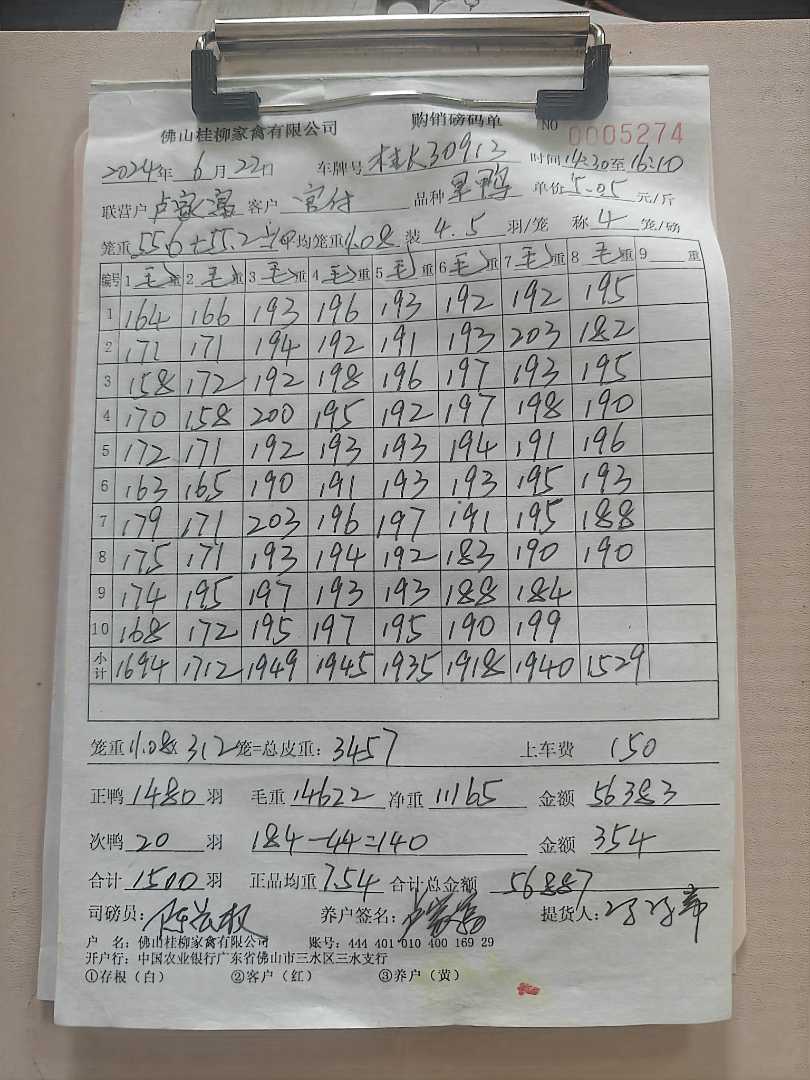 佛山桂柳家禽有限公司 购销磅码单 NO 0005274
2024年 6月 22日 车牌号 桂K30913 时间 14:30至 16:10
联营户 客户 官付 品种 单价 5.05 元/斤
笼重 55.6+55.2 均笼重 11.08 装 4.5 羽/笼 称 4 笼/磅
编号 1 毛重 2 毛重 3 毛重 4 毛重 5 毛重 6 毛重 7 毛重 8 毛重 9 重
1 164 166 193 196 193 192 192 195
2 171 171 194 192 191 193 203 182
3 158 172 192 198 196 197 193 195
4 170 158 200 195 192 197 198 190
5 172 171 192 193 193 194 191 196
6 163 165 190 191 193 193 195 193
7 179 171 203 196 197 191 195 188
8 175 171 193 194 192 183 190 190
9 174 195 197 193 193 188 184
10 168 172 195 197 195 190 199
小计 1694 1712 1949 1945 1935 1918 1940 1529
笼重 11.08X 312 笼=总皮重: 3457 上车费 150
正鸭 1480 羽 毛重 14622 净重 11165 金额 56383
次鸭 20 羽 184-44=140 金额 354
合计 1500 羽 正品均重 7.54 合计总金额 56887
司磅员: 养户签名: 提货人:
户 名: 佛山桂柳家禽有限公司 账号: 444 401 010 400 169 29
开户行: 中国农业银行广东省佛山市三水区三水支行
①存根(白) ②客户(红) ③养户(黄)